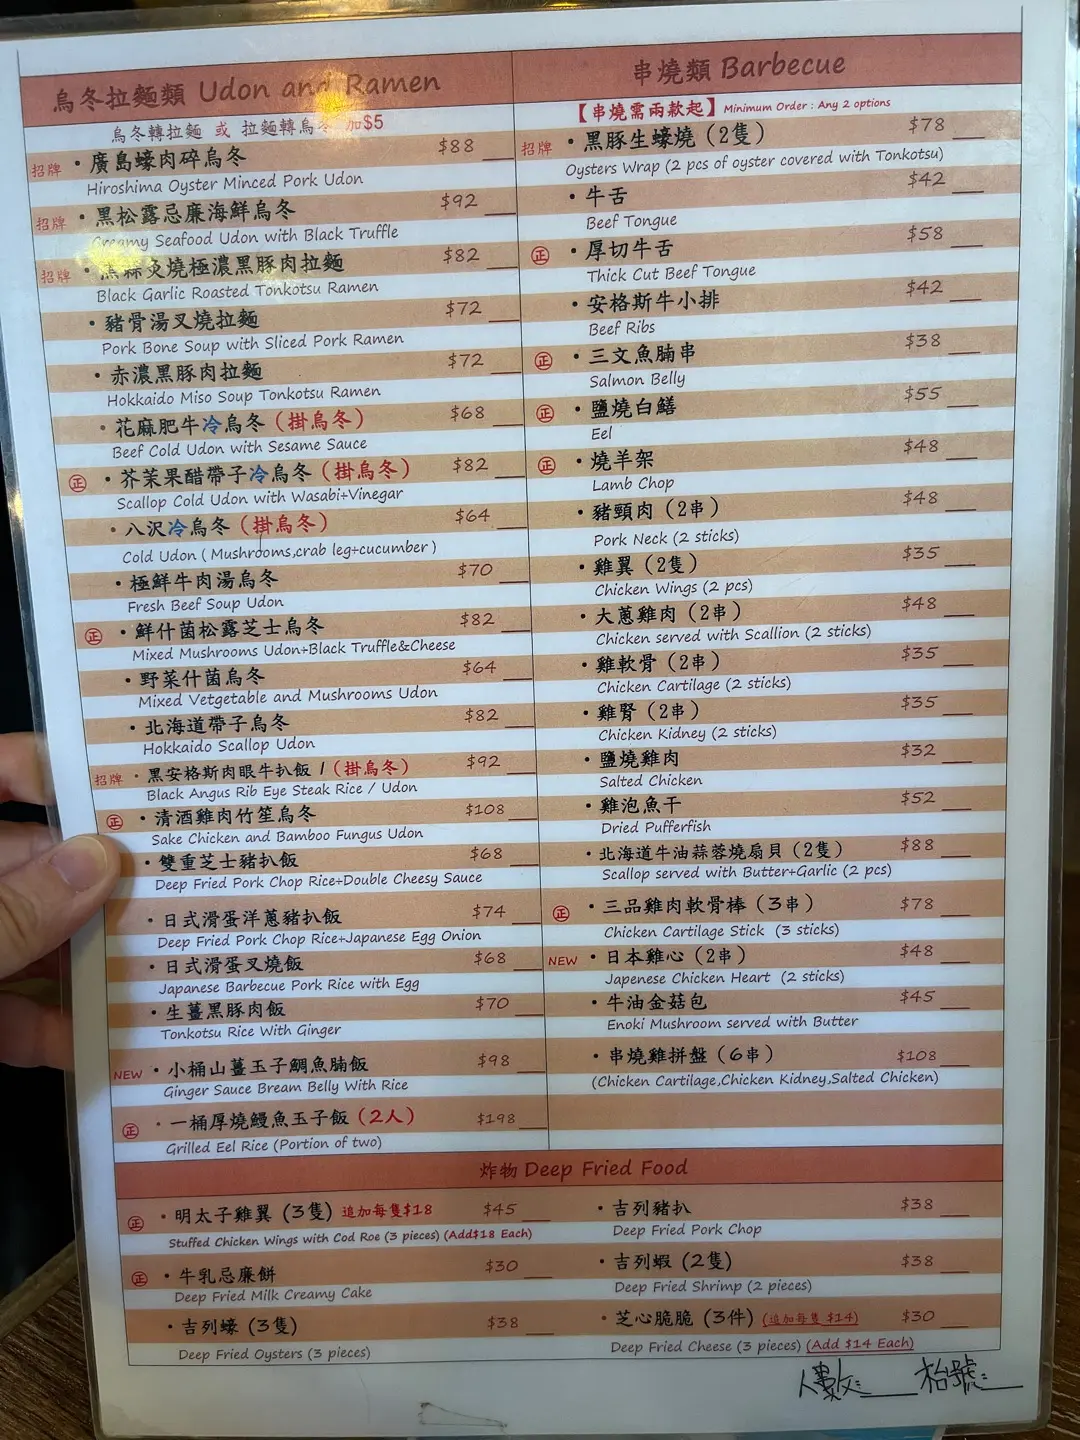 烏冬拉麵類 Udon and Ramen
烏冬轉拉麵 或 拉麵轉烏冬 加$5
招牌 ・廣島蠔肉碎烏冬 $88
Hiroshima Oyster Minced Pork Udon
招牌 ・黑松露忌廉海鮮烏冬 $92
Creamy Seafood Udon with Black Truffle
招牌 ・黑蒜炙燒極濃黑豚肉拉麵 $82
Black Garlic Roasted Tonkotsu Ramen
・豬骨湯叉燒拉麵 $72
Pork Bone Soup with Sliced Pork Ramen
・赤濃黑豚肉拉麵 $72
Hokkaido Miso Soup Tonkotsu Ramen
・花麻肥牛冷烏冬(掛烏冬) $68
Beef Cold Udon with Sesame Sauce
正 ・芥茉果醋帶子冷烏冬(掛烏冬) $82
Scallop Cold Udon with Wasabi+Vinegar
・八沢冷烏冬(掛烏冬) $64
Cold Udon (Mushrooms,crab leg+cucumber)
・極鮮牛肉湯烏冬 $70
Fresh Beef Soup Udon
正 ・鮮什菌松露芝士烏冬 $82
Mixed Mushrooms Udon+Black Truffle&Cheese
・野菜什菌烏冬 $64
Mixed Vetgetable and Mushrooms Udon
・北海道帶子烏冬 $82
Hokkaido Scallop Udon
招牌 ・黑安格斯肉眼牛扒飯 / (掛烏冬) $92
Black Angus Rib Eye Steak Rice / Udon
正 ・清酒雞肉竹笙烏冬 $108
Sake Chicken and Bamboo Fungus Udon
・雙重芝士豬扒飯 $68
Deep Fried Pork Chop Rice+Double Cheesy Sauce
・日式滑蛋洋蔥豬扒飯 $74
Deep Fried Pork Chop Rice+Japanese Egg Onion
・日式滑蛋叉燒飯 $68
Japanese Barbecue Pork Rice with Egg
・生薑黑豚肉飯 $70
Tonkotsu Rice With Ginger
NEW ・小桶山薑玉子鯛魚腩飯 $98
Ginger Sauce Bream Belly With Rice
正 ・一桶厚燒鰻魚玉子飯(2人) $198
Grilled Eel Rice (Portion of two)
串燒類 Barbecue
【串燒需兩款起】 Minimum Order : Any 2 options
招牌 ・黑豚生蠔燒 (2隻) $78
Oysters Wrap (2 pcs of oyster covered with Tonkotsu)
・牛舌 $42
Beef Tongue
正 ・厚切牛舌 $58
Thick Cut Beef Tongue
・安格斯牛小排 $42
Beef Ribs
正 ・三文魚腩串 $38
Salmon Belly
正 ・鹽燒白鱔 $55
Eel
正 ・燒羊架 $48
Lamb Chop
・豬頸肉 (2串) $48
Pork Neck (2 sticks)
・雞翼 (2隻) $35
Chicken Wings (2 pcs)
・大蔥雞肉 (2串) $48
Chicken served with Scallion (2 sticks)
・雞軟骨 (2串) $35
Chicken Cartilage (2 sticks)
・雞腎 (2串) $35
Chicken Kidney (2 sticks)
・鹽燒雞肉 $32
Salted Chicken
・雞泡魚干 $52
Dried Pufferfish
・北海道牛油蒜蓉燒扇貝 (2隻) $88
Scallop served with Butter+Garlic (2 pcs)
正 ・三品雞肉軟骨棒 (3串) $78
Chicken Cartilage Stick (3 sticks)
NEW ・日本雞心 (2串) $48
Japenese Chicken Heart (2 sticks)
・牛油金菇包 $45
Enoki Mushroom served with Butter
・串燒雞拼盤 (6串) $108
(Chicken Cartilage,Chicken Kidney,Salted Chicken)
炸物 Deep Fried Food
正 ・明太子雞翼 (3隻) 追加每隻$18 $45
Stuffed Chicken Wings with Cod Roe (3 pieces) (Add$18 Each)
正 ・牛乳忌廉餅 $30
Deep Fried Milk Creamy Cake
・吉列蠔 (3隻) $38
Deep Fried Oysters (3 pieces)
・吉列豬扒 $38
Deep Fried Pork Chop
・吉列蝦 (2隻) $38
Deep Fried Shrimp (2 pieces)
・芝心脆脆 (3件) (追加每隻 $14) $30
Deep Fried Cheese (3 pieces) (Add $14 Each)
人數:____ 枱號:____